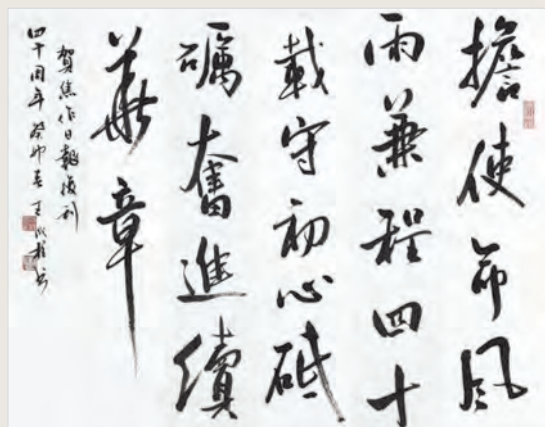 擔使命風
雨兼程四十
載守初心砥
礪奮進續
華章
賀焦作日報復刊
四十周年癸卯春王